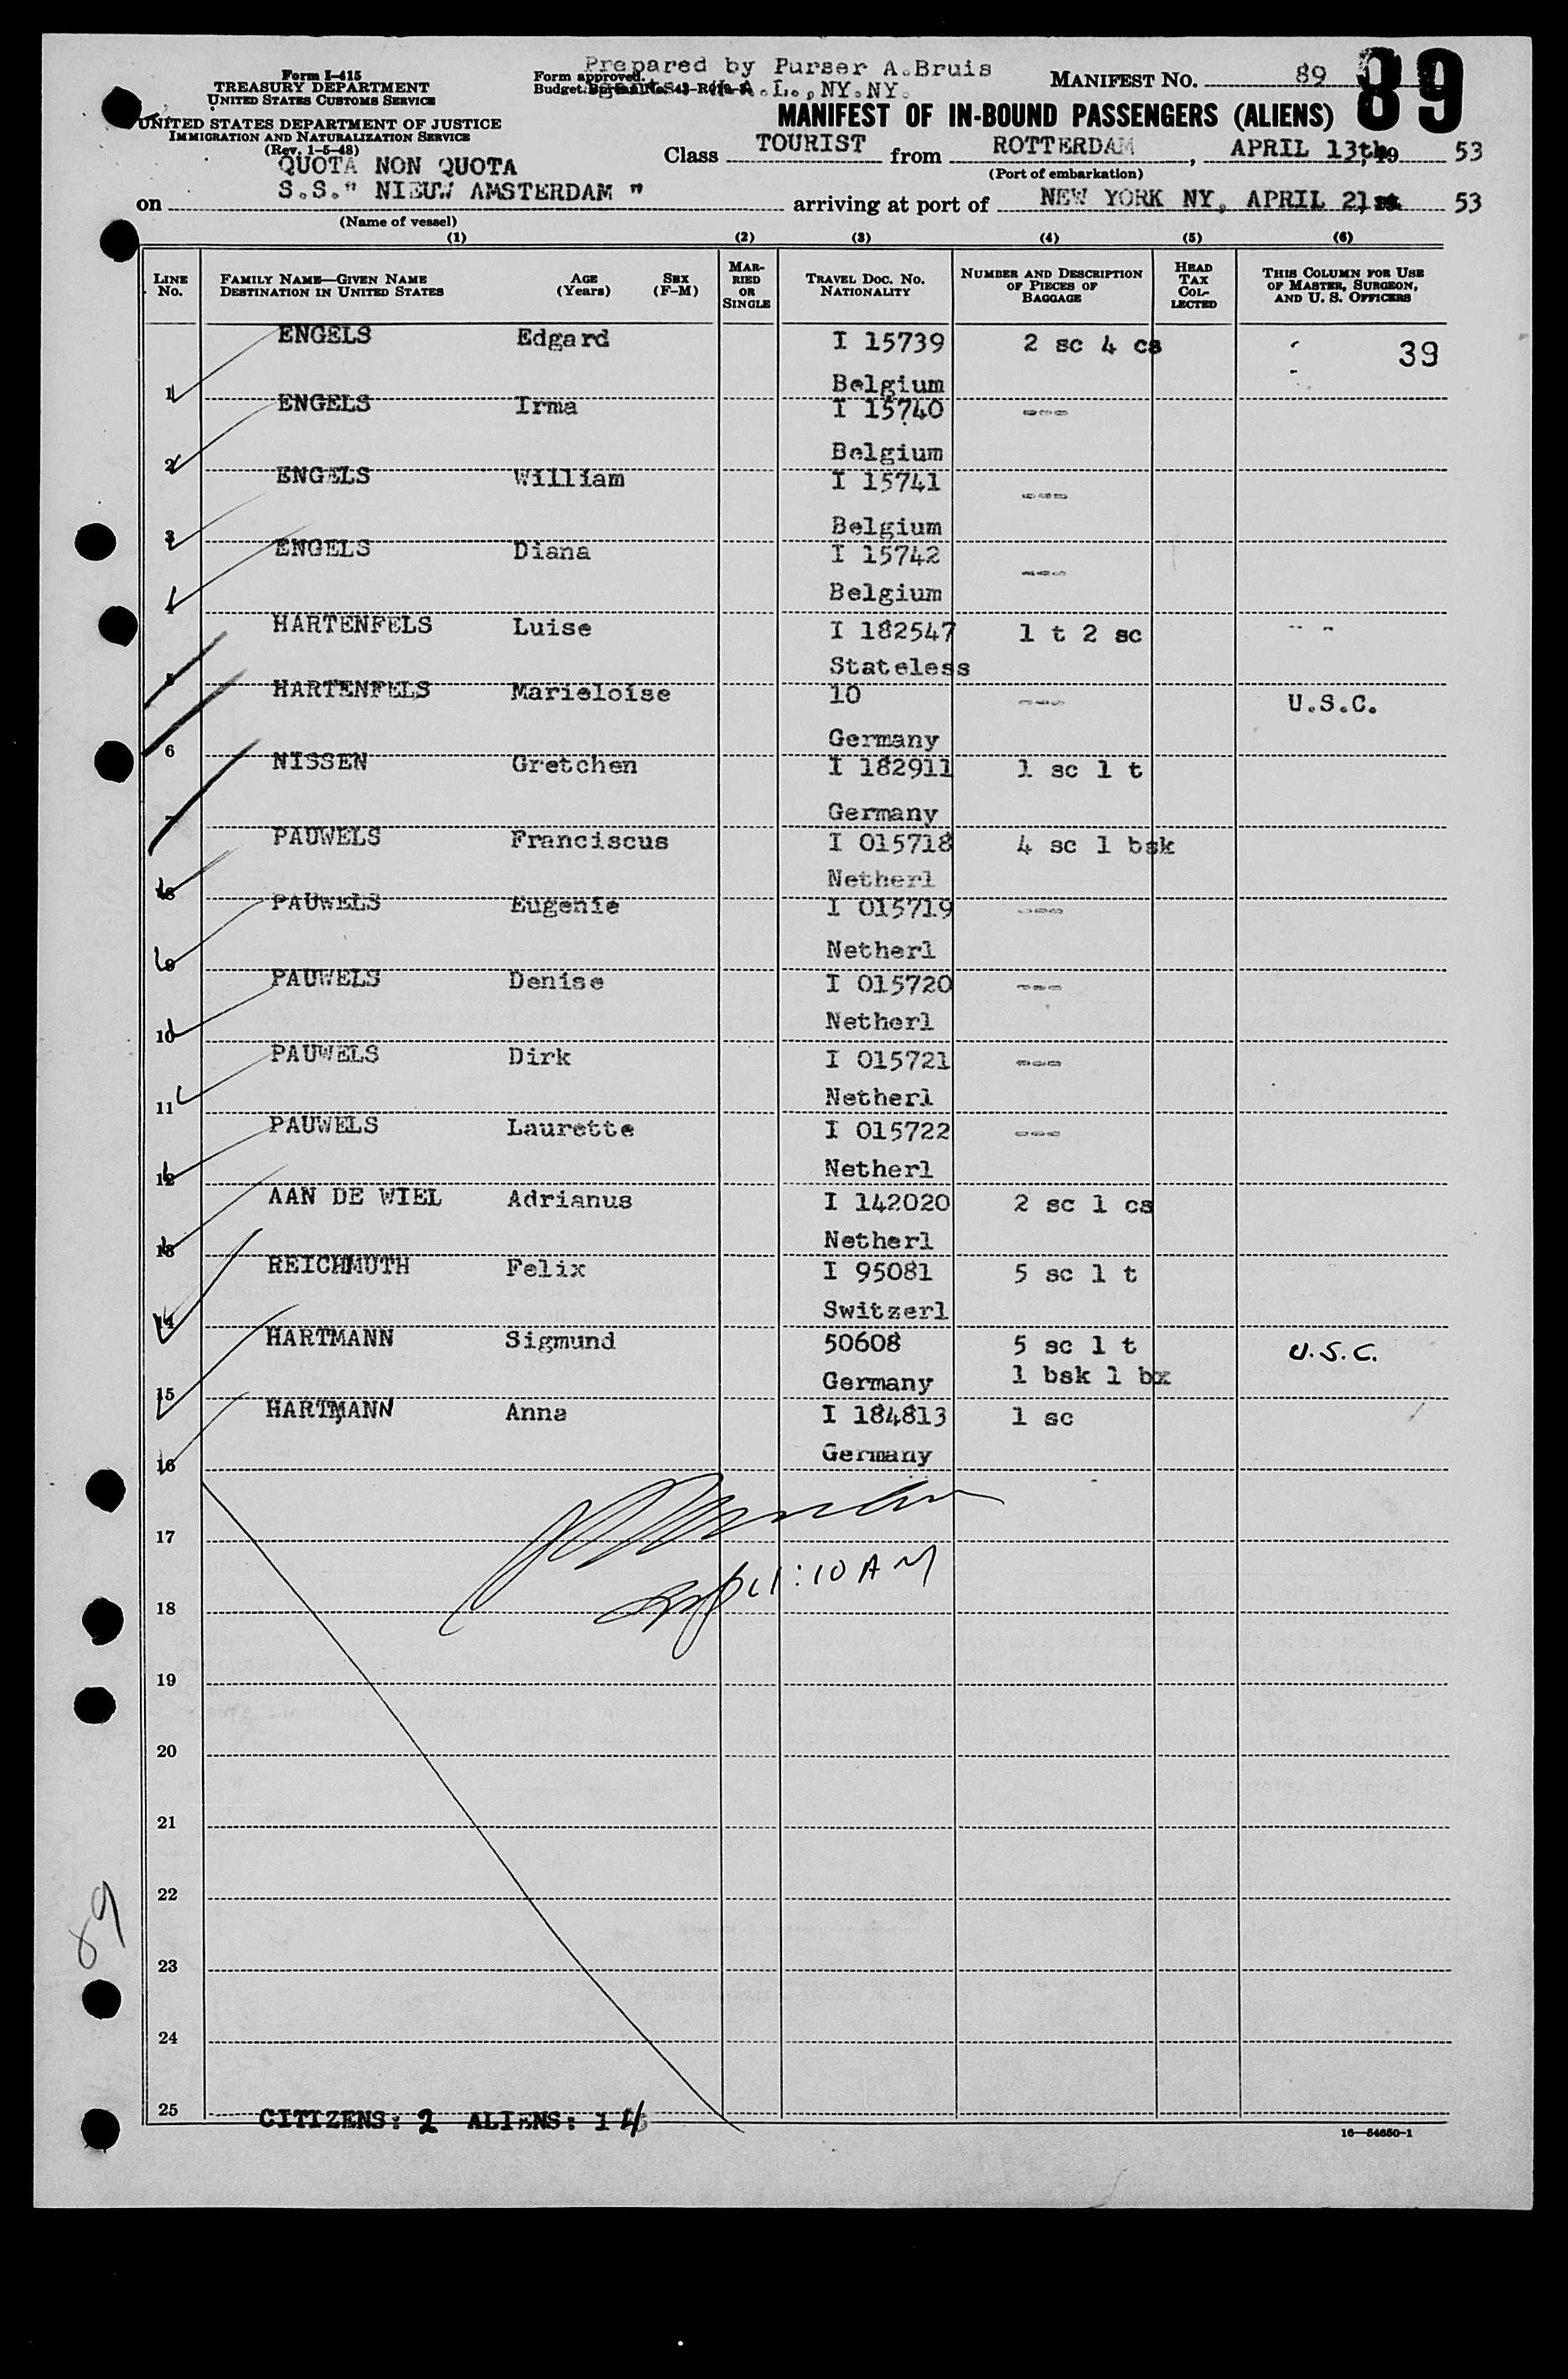 Form I-415
TREASURY DEPARTMENT
UNITED STATES CUSTOMS SERVICE
UNITED STATES DEPARTMENT OF JUSTICE
IMMIGRATION AND NATURALIZATION SERVICE
(Rev. 1-5-48)
QUOTA NON QUOTA
Prepared by Purser A.Bruis
Form approved.
Budget Bureau No. 43-R
A.L., NY.NY.
MANIFEST NO. 89
89
MANIFEST OF IN-BOUND PASSENGERS (ALIENS)
Class TOURIST from ROTTERDAM, APRIL 13th, 19 53
(Port of embarkation)
on S.S." NIEUW AMSTERDAM " arriving at port of NEW YORK NY, APRIL 21st 53
(Name of vessel)
(1) (2) (3) (4) (5) (6)
LINE No. FAMILY NAME—GIVEN NAME DESTINATION IN UNITED STATES AGE (Years) SEX (F-M) MARRIED OR SINGLE TRAVEL DOC. NO. NATIONALITY NUMBER AND DESCRIPTION OF PIECES OF BAGGAGE HEAD TAX COLLECTED THIS COLUMN FOR USE OF MASTER, SURGEON, AND U. S. OFFICERS
ENGELS Edgard I 15739 2 sc 4 cs 39
1 Belgium
ENGELS Irma I 15740 ---
2 Belgium
ENGELS William I 15741 ---
3 Belgium
ENGELS Diana I 15742 ---
4 Belgium
HARTENFELS Luise I 182547 1 t 2 sc
5 Stateless
HARTENFELS Marieloise 10 --- U.S.C.
6 Germany
NISSEN Gretchen I 182911 1 sc 1 t
7 Germany
PAUWELS Franciscus I 015718 4 sc 1 bsk
8 Netherl
PAUWELS Eugenie I 015719 ---
9 Netherl
PAUWELS Denise I 015720 ---
10 Netherl
PAUWELS Dirk I 015721 ---
11 Netherl
PAUWELS Laurette I 015722 ---
12 Netherl
AAN DE WIEL Adrianus I 142020 2 sc 1 cs
13 Netherl
REICHMUTH Felix I 95081 5 sc 1 t
14 Switzerl
HARTMANN Sigmund 50608 5 sc 1 t U.S.C.
15 Germany 1 bsk 1 bx
HARTMANN Anna I 184813 1 sc
16 Germany
17
11:10 AM
18
19
20
21
22
89
23
24
25
CITIZENS: 2 ALIENS: 14
16—54650-1